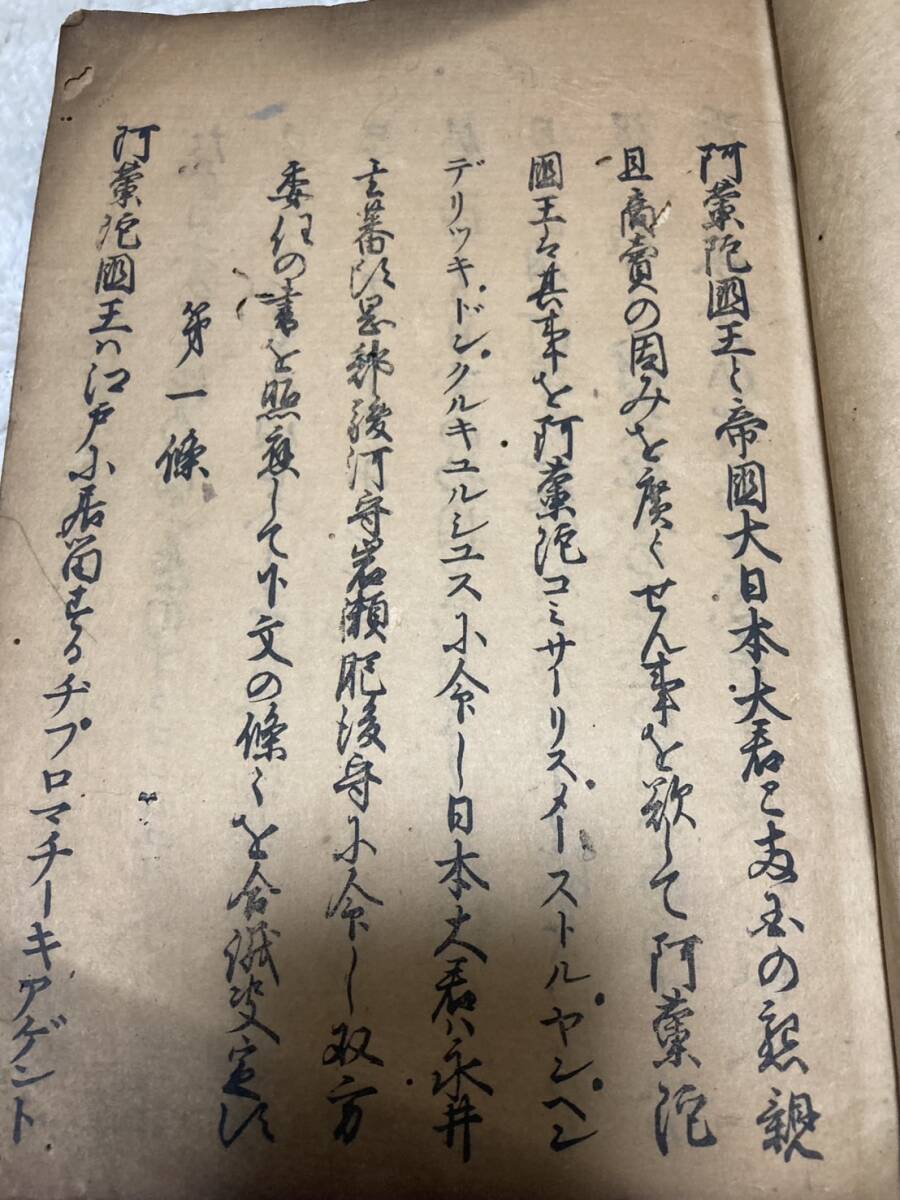 阿蘭陀國王と帝國大日本大君と両国の懇親
且商賣の因みを廣くせん事を欲して阿蘭陀
國王は其事を阿蘭陀コミサーリスメーストルヤンヘン
デリッキドンクルキユルシユスに命し日本大君ハ永井
玄蕃頭岡部駿河守岩瀬肥後守に命し双方
委任の書を照應して下文の條々を合議決定す
第一條
阿蘭陀國王ハ江戸に居留するヂプロマチーキアゲント